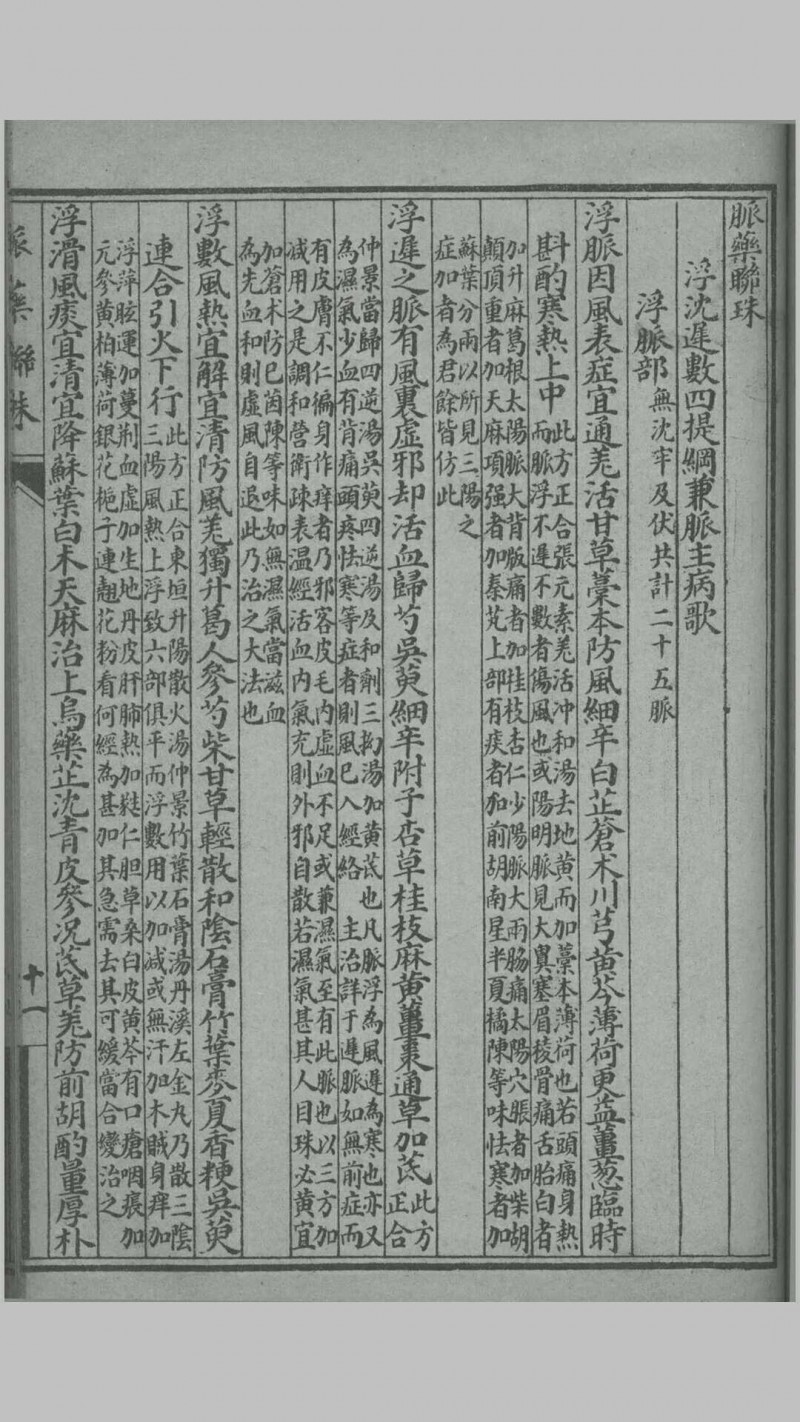 脈藥聯珠
浮沈遲數四提綱兼脈主病歌
浮脈部 無沈牢及伏共計二十五脈
浮脈因風表症宜通羌活甘草藁本防風細辛白芷蒼朮川芎黃芩薄荷更益薑葱臨時
斟酌寒熱上中
此方正合張元素羌活冲和湯去地黃而加藁本薄荷也若頭痛身熱
而脈浮不遲不數者傷風也或陽明脈見大鼻塞眉稜骨痛舌胎白者
加升麻葛根太陽脈大背版痛者加桂枝杏仁少陽脈大兩脇痛太陽穴脹者加柴胡
顛頂重者加天麻項强者加秦艽上部有痰者加前胡南星半夏橘陳等味怯寒者加
蘇葉分兩以所見三陽之
症加者為君餘皆仿此
浮遲之脈有風裏虛邪却活血歸芍吳萸細辛附子杏草桂枝麻黃薑棗通草加芪
此方
正合
仲景當歸四逆湯吳萸四逆湯及和劑三拗湯加黃芪也凡脈浮為風遲為寒也亦又
為濕氣少血有背痛頭疼怯寒等症者則風已入經絡 主治詳于遲脈如無前症而
有皮膚不仁徧身作痒者乃邪客皮毛內虛血不足或兼濕氣至有此脈也以三方加
减用之是調和營衛疎表温經活血內氣充則外邪自散若濕氣甚其人目珠必黃宜
加蒼朮防已茵陳等味如無濕氣當滋血
為先血和則虛風自退此乃治之大法也
浮數風熱宜解宜清防風羌獨升葛人參芍柴甘草輕散和陰石膏竹葉麥夏香粳吳萸
連合引火下行
此方正合東垣升陽散火湯仲景竹葉石膏湯丹溪左金丸乃散三陰
三陽風熱上浮致六部俱平而浮數用以加减或無汗加木賊身痒加
浮萍眩運加蔓荆血虛加生地丹皮肝肺熱加㽔仁胆草桑白皮黃芩有口瘡咽痕加
元參黃柏薄荷銀花梔子連翹花粉看何經為甚加其急需去其可緩當合變治之
浮滑風痰宜清宜降蘇葉白朮天麻治上烏藥芷沈青皮參况芪草羌防前胡酌量厚朴
脈藥聯珠
十一